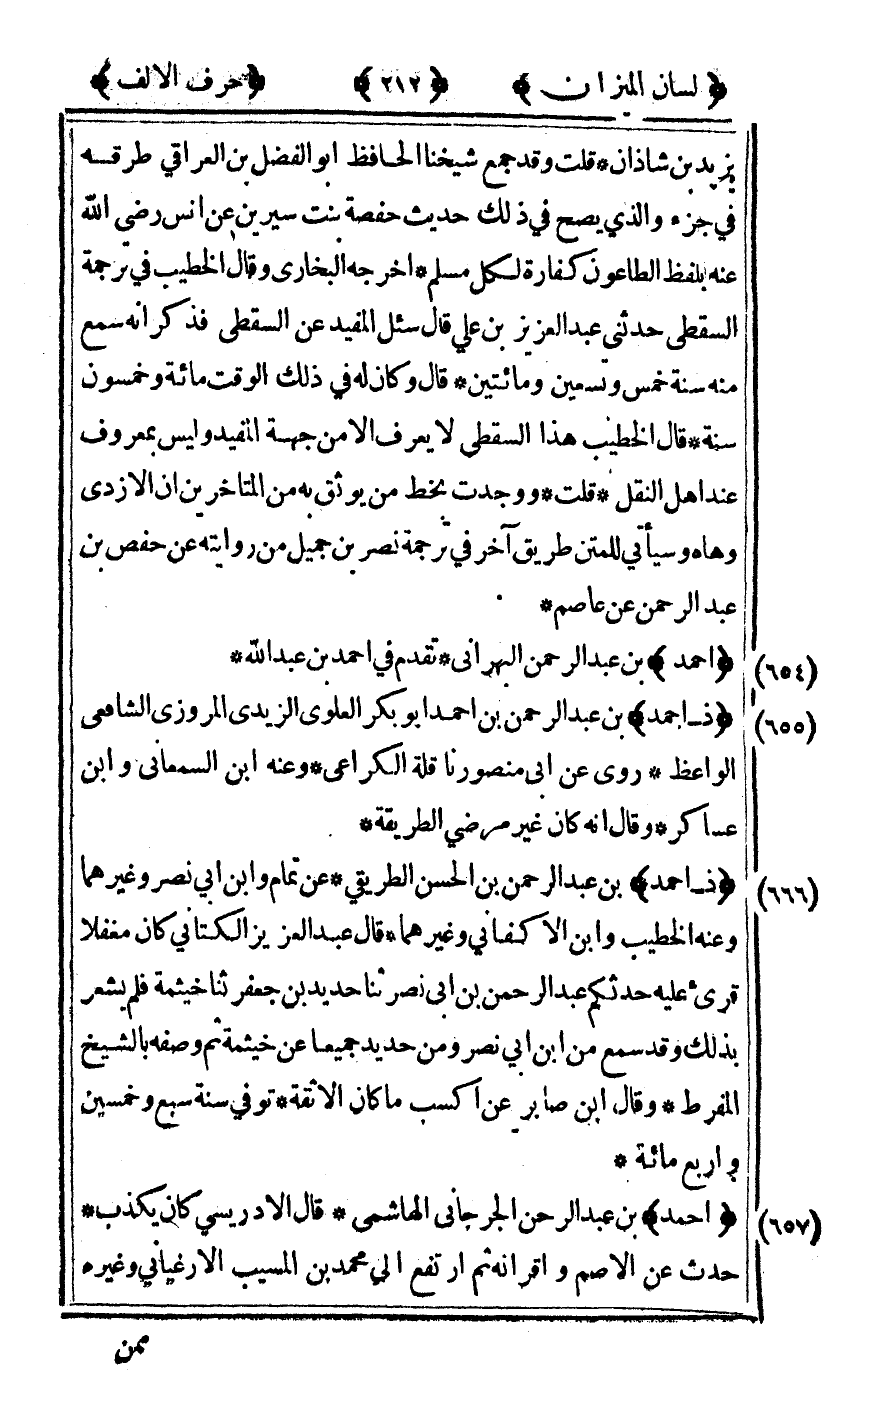 ﴿ لسان الميزان ﴾ ﴿ ٢١٢ ﴾ ﴿ حرف الالف ﴾
يزيد بن شاذان * قلت وقد جمع شيخنا الحافظ ابو الفضل بن العراقي طرقه
في جزء والذي يصح في ذلك حديث حفصة بنت سيرين عن انس رضي الله
عنه بلفظ الطاعون كفارة لكل مسلم * اخرجه البخارى وقال الخطيب في ترجمة
السقطى حدثنى عبد العزيز بن علي قال سئل المفيد عن السقطى فذكر انه سمع
منه سنة خمس وتسعين ومائتين * قال وكان له في ذلك الوقت مائة وخمسون
سنة * قال الخطيب هذا السقطى لا يعرف الا من جهة المفيد وليس بمعروف
عند اهل النقل * قلت * ووجدت بخط من يوثق به من المتاخرين ان الازدى
وهاه وسيأتي للمتن طريق آخر في ترجمة نصر بن جميل من روايته عن حفص بن
عبد الرحمن عن عاصم *
(٦٥٤) ﴿ احمد ﴾ بن عبد الرحمن البهرانى * تقدم في احمد بن عبد الله *
(٦٥٥) ﴿ ذ ـ احمد ﴾ بن عبد الرحمن بن احمد ابو بكر العلوى الزيدى المروزى الشافعى
الواعظ * روى عن ابى منصور نا قلة الكراعى * وعنه ابن السمعانى و ابن
عساكر * وقال انه كان غير مرضي الطريقة *
(٦٦٦) ﴿ ذ ـ احمد ﴾ بن عبد الرحمن بن الحسن الطريقي * عن تمام وابن ابي نصر وغيرهما
وعنه الخطيب وابن الاكفاني وغيرهما * قال عبد العزيز الكتاني كان مغفلا
قرئ عليه حدثكم عبد الرحمن بن ابى نصر ثنا حديد بن جعفر ثنا خيثمة فلم يشعر
بذلك وقد سمع من ابن ابي نصر ومن حديد جميعا عن خيثمة ثم وصفه بالشيخ
المفرط * وقال ابن صابر عن اكسب ماكان الا ثقة * توفي سنة سبع وخمسين
واربع مائة *
(٦٥٧) ﴿ احمد ﴾ بن عبد الرحمن الجرجانى الهاشمى * قال الادريسي كان يكذب *
حدث عن الاصم و اقرانه ثم ارتفع الي محمد بن المسيب الارغياني وغيره
ممن